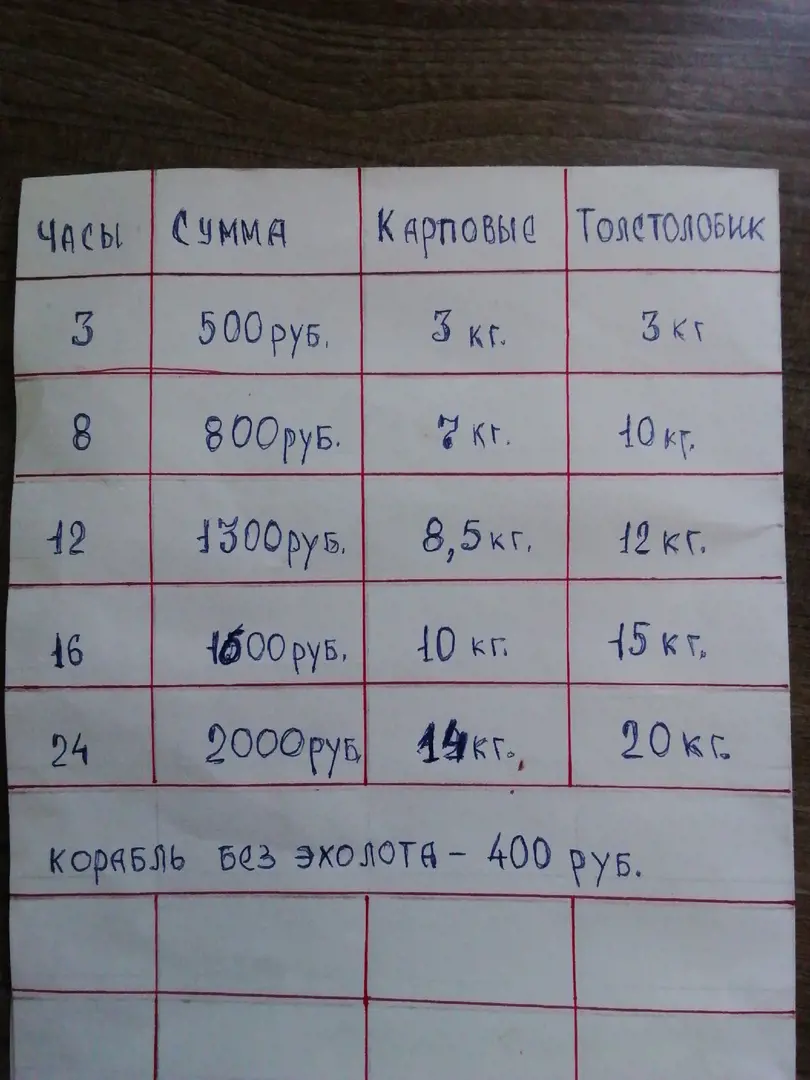 ЧАСЫ СУММА КАРПОВЫЕ ТОЛСТОЛОБИК
3 500 руб. 3 кг. 3 кг
8 800 руб. 7 кг. 10 кг.
12 1300 руб. 8,5 кг. 12 кг.
16 1600 руб. 10 кг. 15 кг.
24 2000 руб. 14 кг. 20 кг.
КОРАБЛЬ БЕЗ ЭХОЛОТА - 400 руб.